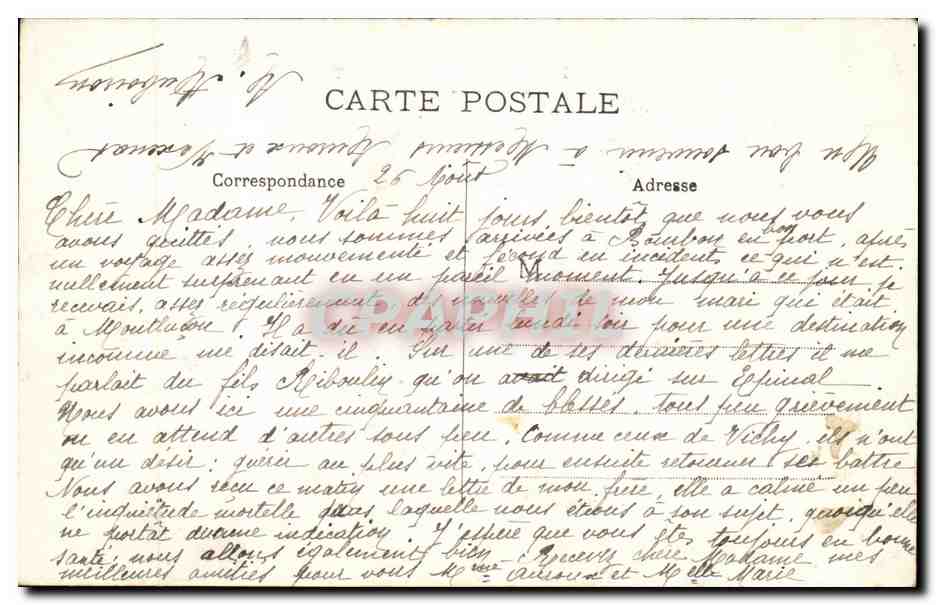 CARTE POSTALE
Correspondance
Adresse
26 Août
Chère Madame, Voilà huit jours bientôt que nous vous
avons quittés, nous sommes arrivées à Bourbon en bon port, après
un voyage assez mouvementé et fécond en incidents ce qui n'est
nullement surprenant en un pareil moment. Jusqu'à ce jour, je
recevais assez régulièrement de nouvelles de mon mari qui était
à Montluçon. Il a dû en partir lundi soir pour une destination
inconnue me disait-il. Sur une de ses dernières lettres il me
parlait du fils Riboulin qu'on avait dirigé sur Epinal
Nous avons ici une cinquantaine de blessés, tous peu grièvement
on en attend d'autres sous peu. Comme ceux de Vichy, ils n'ont
qu'un désir : guérir au plus vite, pour ensuite retourner se battre
Nous avons reçu ce matin une lettre de mon frère, elle a calmé un peu
l'inquiétude mortelle dans laquelle nous étions à son sujet, quoiqu'elle
ne portât aucune indication. J'espère que vous êtes toujours en bonne
santé, nous allons également bien. Recevez chère Madame mes
meilleures amitiés pour vous Mme Auroux et Melle Marie
Mon bon souvenir à Messieurs Auroux et
M
CPAPHIL